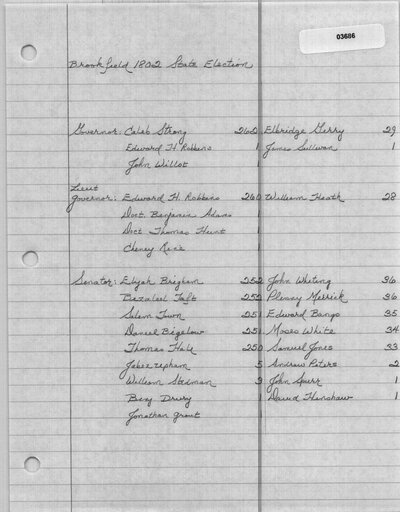 03686
Brookfield 1802 State Election
Governor: Caleb Strong 262 Elbridge Gerry 29
Edward H. Robbins 1 James Sullivan 1
John Willot 1
Lieut
governor: Edward H. Robbins 260 William Heath 28
Doct. Benjamin Adams 1
Doct Thomas Hunt 1
Cheney Rice 1
Senator: Elijah Brigham 252 John Whiting 36
Bezaleel Taft 252 Plinny Merrick 36
Salem Town 251 Edward Bangs 35
Daniel Bigelow 251 Moses White 34
Thomas Hale 250 Samuel Jones 33
Jabez Upham 5 Andrew Peters 2
William Stedman 3 John Spurr 1
Benj Drury 1 David Henshaw 1
Jonathan Grout 1